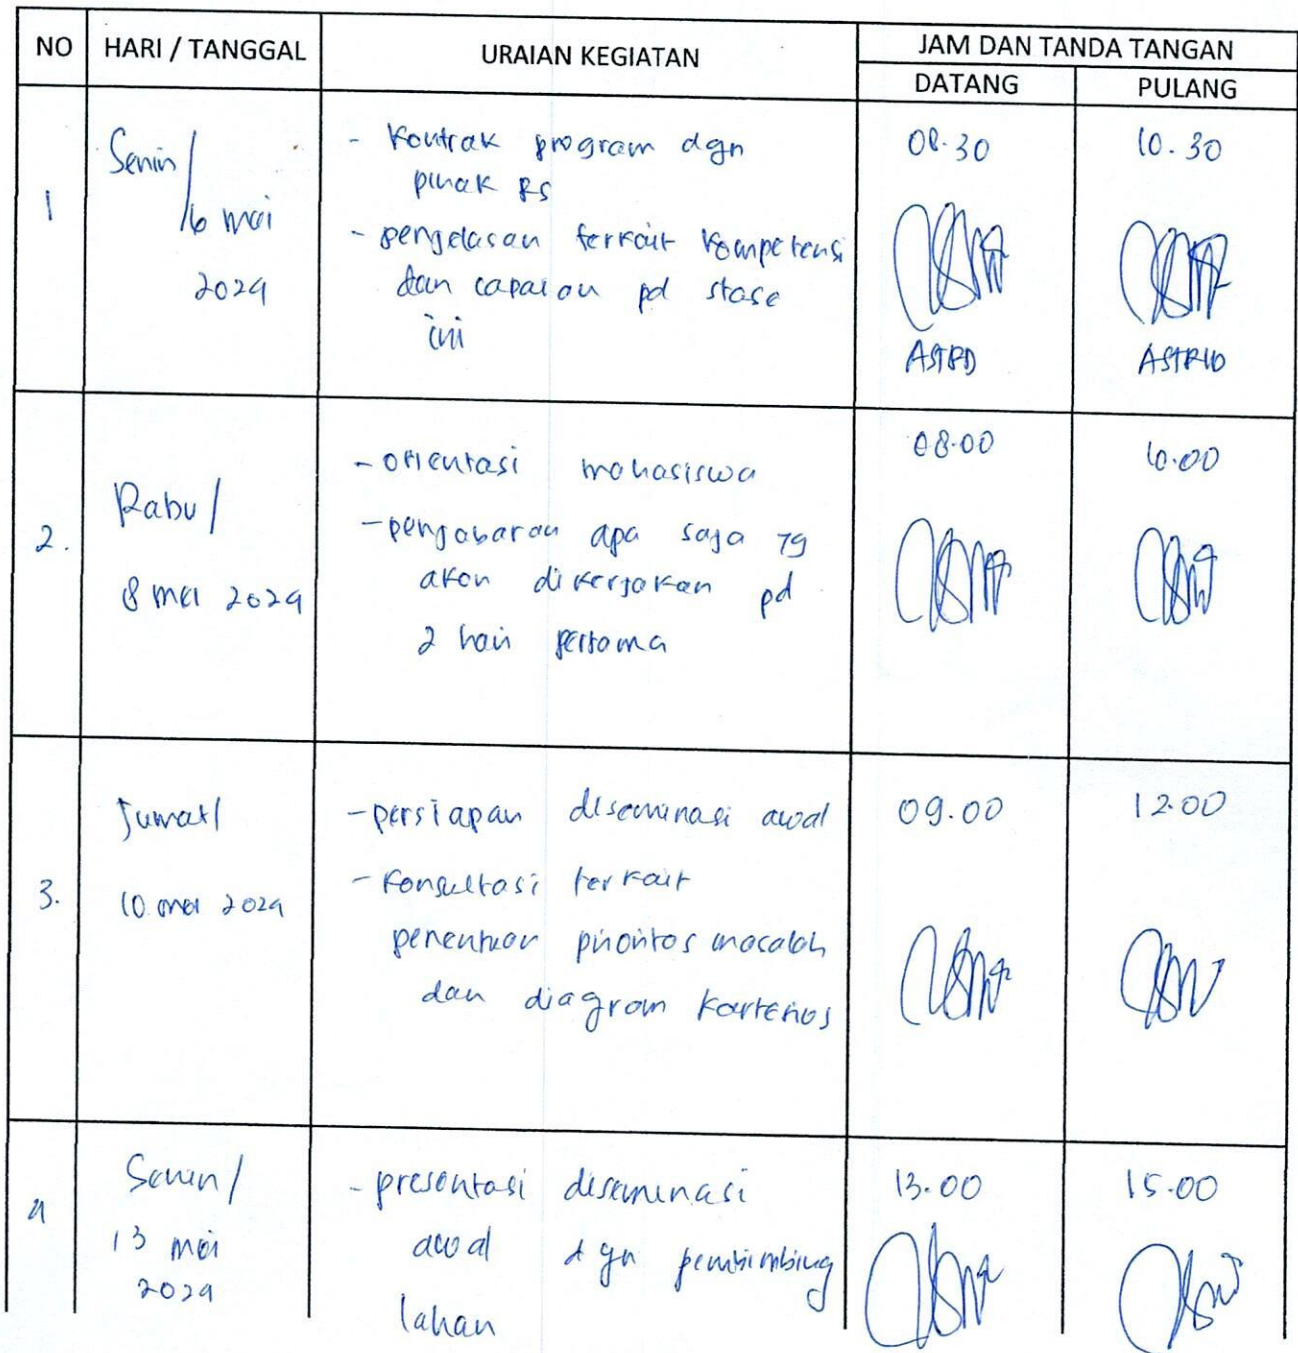 NO HARI / TANGGAL URAIAN KEGIATAN JAM DAN TANDA TANGAN
DATANG PULANG
1 Senin / 6 mei 2024
- Kontrak program dgn
pihak RS
- penjelasan terkait kompetensi
dan capaian pd stase
ini
08.30 10.30
ASTRID ASTRID
2. Rabu /
8 mei 2024
- orientasi mahasiswa
- penjabaran apa saja yg
akan dikerjakan pd
2 hari pertama
08.00 10.00
3. Jumat /
10 mei 2024
- persiapan diseminasi awal
- Konsultasi terkait
penentuan prioritas masalah
dan diagram kartesius
09.00 12.00
4 Senin /
13 mei
2024
- presentasi diseminasi
awal dgn pembimbing
lahan
13.00 15.00